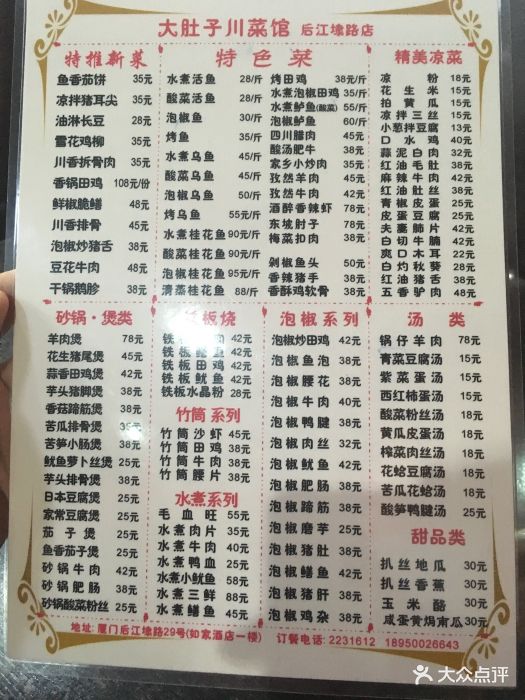 大肚子川菜馆 后江埭路店
特推新菜
鱼香茄饼 35元
凉拌猪耳尖 35元
油淋长豆 28元
雪花鸡柳 35元
川香折骨肉 35元
香锅田鸡 108元/份
鲜椒脆鳝 48元
川香排骨 45元
泡椒炒猪舌 38元
豆花牛肉 48元
干锅鹅胗 38元
特色菜
水煮活鱼 28/斤
酸菜活鱼 28/斤
泡椒鱼 30/斤
烤鱼 35/斤
水煮乌鱼 45/斤
酸菜乌鱼 45/斤
泡椒乌鱼 49/斤
烤乌鱼 55元/斤
水煮桂花鱼 90元/斤
酸菜桂花鱼 90元/斤
泡椒桂花鱼 95元/斤
清蒸桂花鱼 88/斤
烤田鸡 38元/斤
水煮泡椒田鸡 38元/斤
水煮鲈鱼(酸菜) 55/斤
泡椒鲈鱼 60元/斤
四川腊肉 45元
酸汤肥牛 38元
家乡小炒肉 35元
孜然羊肉 45元
孜然牛肉 42元
酒醉香辣虾 78元
东坡肘子 78元
梅菜扣肉 38元
剁椒鱼头 50元
香辣猪手 38元
香酥鸡软骨 38元
精美凉菜
凉粉 18元
花生米 15元
拍黄瓜 15元
凉拌三丝 15元
小葱拌豆腐 13元
口水鸡 40元
蒜泥白肉 32元
麻辣牛肉 42元
红油毛肚 38元
红油肚丝 38元
青椒皮蛋 20元
皮蛋豆腐 20元
夫妻肺片 42元
白切牛腩 42元
爽口木耳 22元
白灼秋葵 28元
红油猪舌 38元
五香驴肉 48元
砂锅·煲类
羊肉煲 78元
花生猪尾煲 45元
蒜香田鸡煲 42元
芋头猪脚煲 38元
香菇蹄筋煲 38元
苦瓜排骨煲 38元
苦笋小肠煲 38元
鱿鱼萝卜丝煲 25元
芋头排骨煲 38元
日本豆腐煲 25元
家常豆腐煲 25元
茄子煲 25元
鱼香茄子煲 25元
砂锅牛肉 42元
砂锅肥肠 38元
砂锅酸菜粉丝 25元
板烧
铁板 42元
铁板 42元
铁板田鸡 42元
铁板鱿鱼 42元
铁板水晶粉 28元
竹筒系列
竹筒沙虾 45元
竹筒田鸡 38元
竹筒牛肉 38元
竹筒腰片 38元
水煮系列
毛血旺 55元
水煮肉片 35元
水煮牛肉 40元
水煮鸭血 25元
水煮小鱿鱼 58元
水煮三鲜 88元
水煮鳝鱼 45元
泡椒系列
泡椒炒田鸡 42元
泡椒鱼泡 35元
泡椒腰花 38元
泡椒牛肉 40元
泡椒鸭腱 38元
泡椒肉丝 32元
泡椒鱿鱼 38元
泡椒肥肠 38元
泡椒蹄筋 38元
泡椒磨芋 25元
泡椒猪肚 38元
泡椒鳝鱼 42元
泡椒猪肝 32元
泡椒鸡杂 38元
汤类
锅仔羊肉 78元
青菜豆腐汤 15元
紫菜蛋汤 15元
西红柿蛋汤 15元
酸菜粉丝汤 18元
黄瓜皮蛋汤 18元
榨菜肉丝汤 18元
花蛤豆腐汤 18元
苦瓜花蛤汤 18元
酸笋鸭腱汤 25元
甜品类
扒丝地瓜 30元
扒丝香蕉 30元
玉米酪 30元
咸蛋黄焗南瓜 30元
地址:厦门后江埭路29号(如家酒店一楼) 订餐电话:2231612 18950026643
大众点评